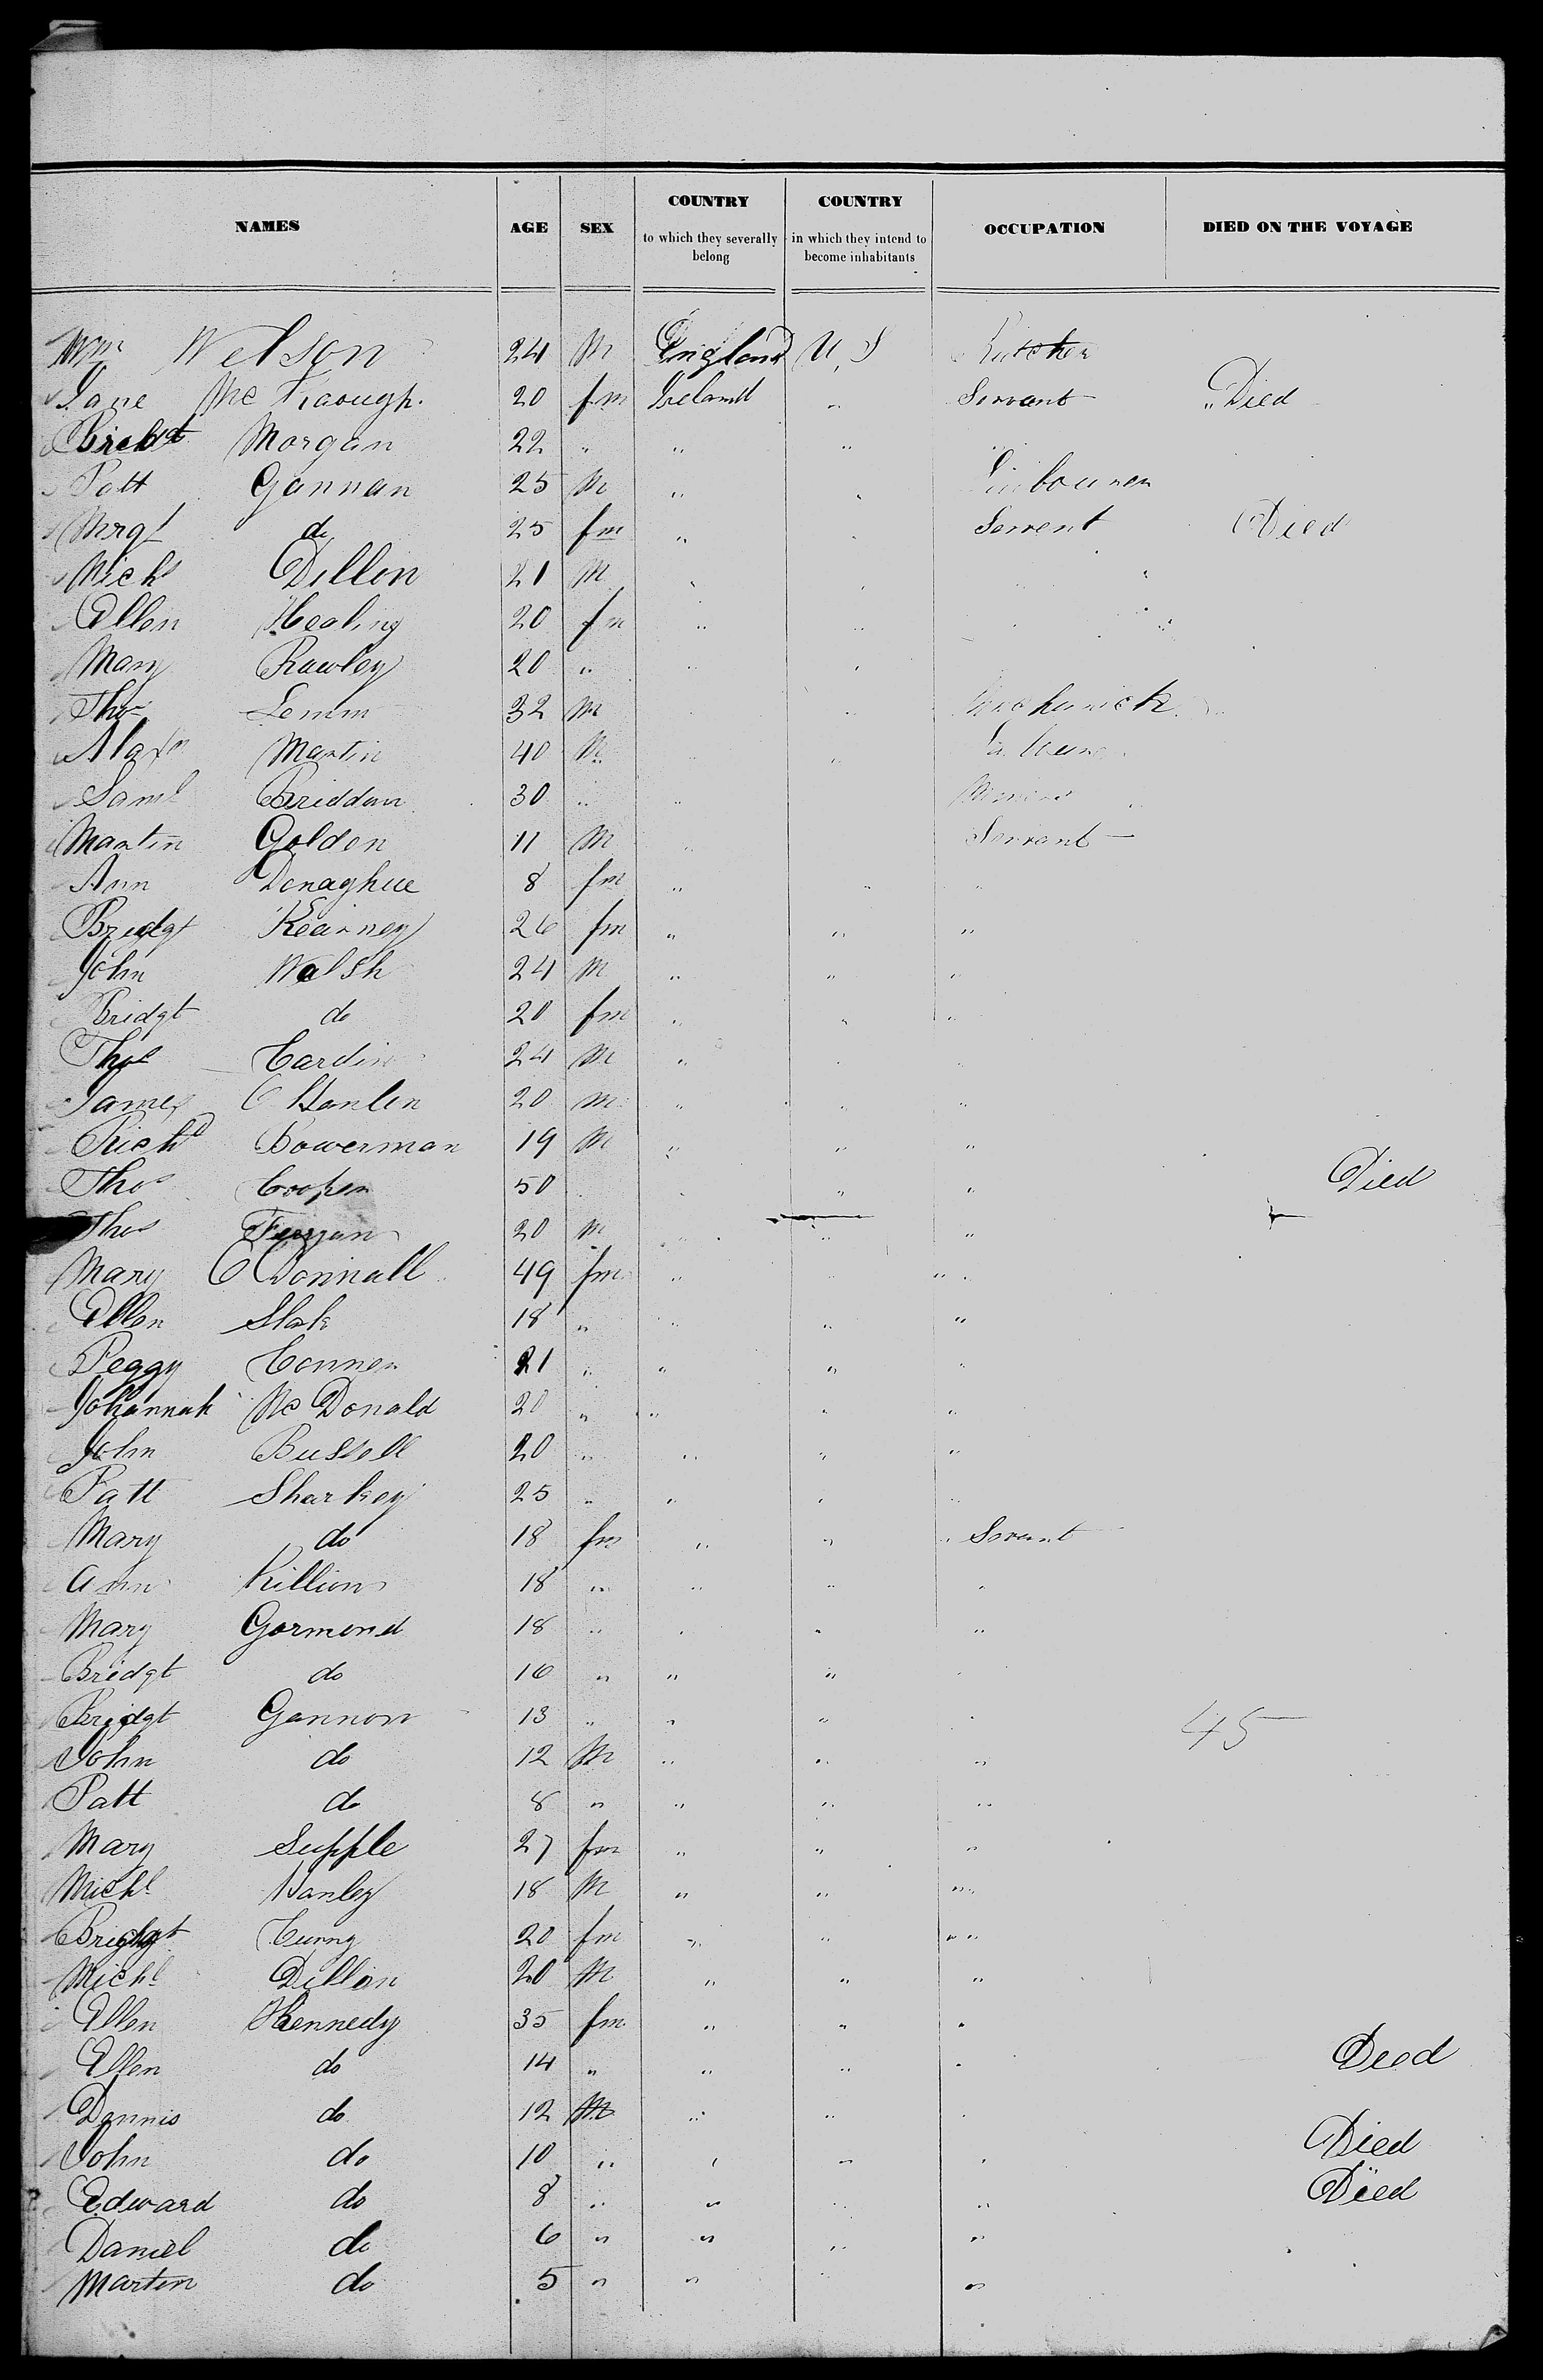 NAMES AGE SEX COUNTRY to which they severally belong COUNTRY in which they intend to become inhabitants OCCUPATION DIED ON THE VOYAGE
Wm Welson 24 M England U S Butcher
Jane Mc 20 fm Ireland " Servant " Died
Bridgt Morgan 22 " " " "
Patt Gannan 25 M " "
Mrgt do 25 fm " " Servent Died
Mich Dillon 21 M " "
Ellen Healing 20 fm " "
Mary Rawley 20 " " "
Thos Lemm 32 M Mechanick
Alaxn Martin 40 M
Saml Briddan 30 " " Miner
Martin Golden 11 M " Servant
Ann Donaghue 8 fm " " "
Bridgt Kearney 26 fm " " "
John Walsh 24 M " " "
Bridgt do 20 fm " " "
Thos Cardin 24 M " "
James O Hanlen 20 M " " "
Richd Bowerman 19 M " " "
Thos Cooper 50 " " Died
Thos 20 M " " "
Mary O Donnall 49 fm " " "
Ellen Slak 18 " " " "
Peggy Conner 21 " " " "
Johannah Mc Donald 20 " " " "
John Bussell 20 " " " "
Patt Sharkey 25 " " " "
Mary do 18 fm " " " Servant
Ann Killion 18 " " " "
Mary Gormond 18 " " " "
Bridgt do 16 " " " "
Bridgt Gannon 13 " " " "
45
John do 12 M " " "
Patt do 8 " " " "
Mary Supple 27 fm " " "
Michl Hanley 18 M " " "
Bridgt Cunny 20 fm " " "
Michl Dillon 20 M " " "
Ellen Kennedy 35 fm " " "
Ellen do 14 " " " " Died
Dennis do 12 M " " "
John do 10 " " " " Died
Edward do 8 " " " " Died
Daniel do 6 " " " "
Martin do 5 " " " "